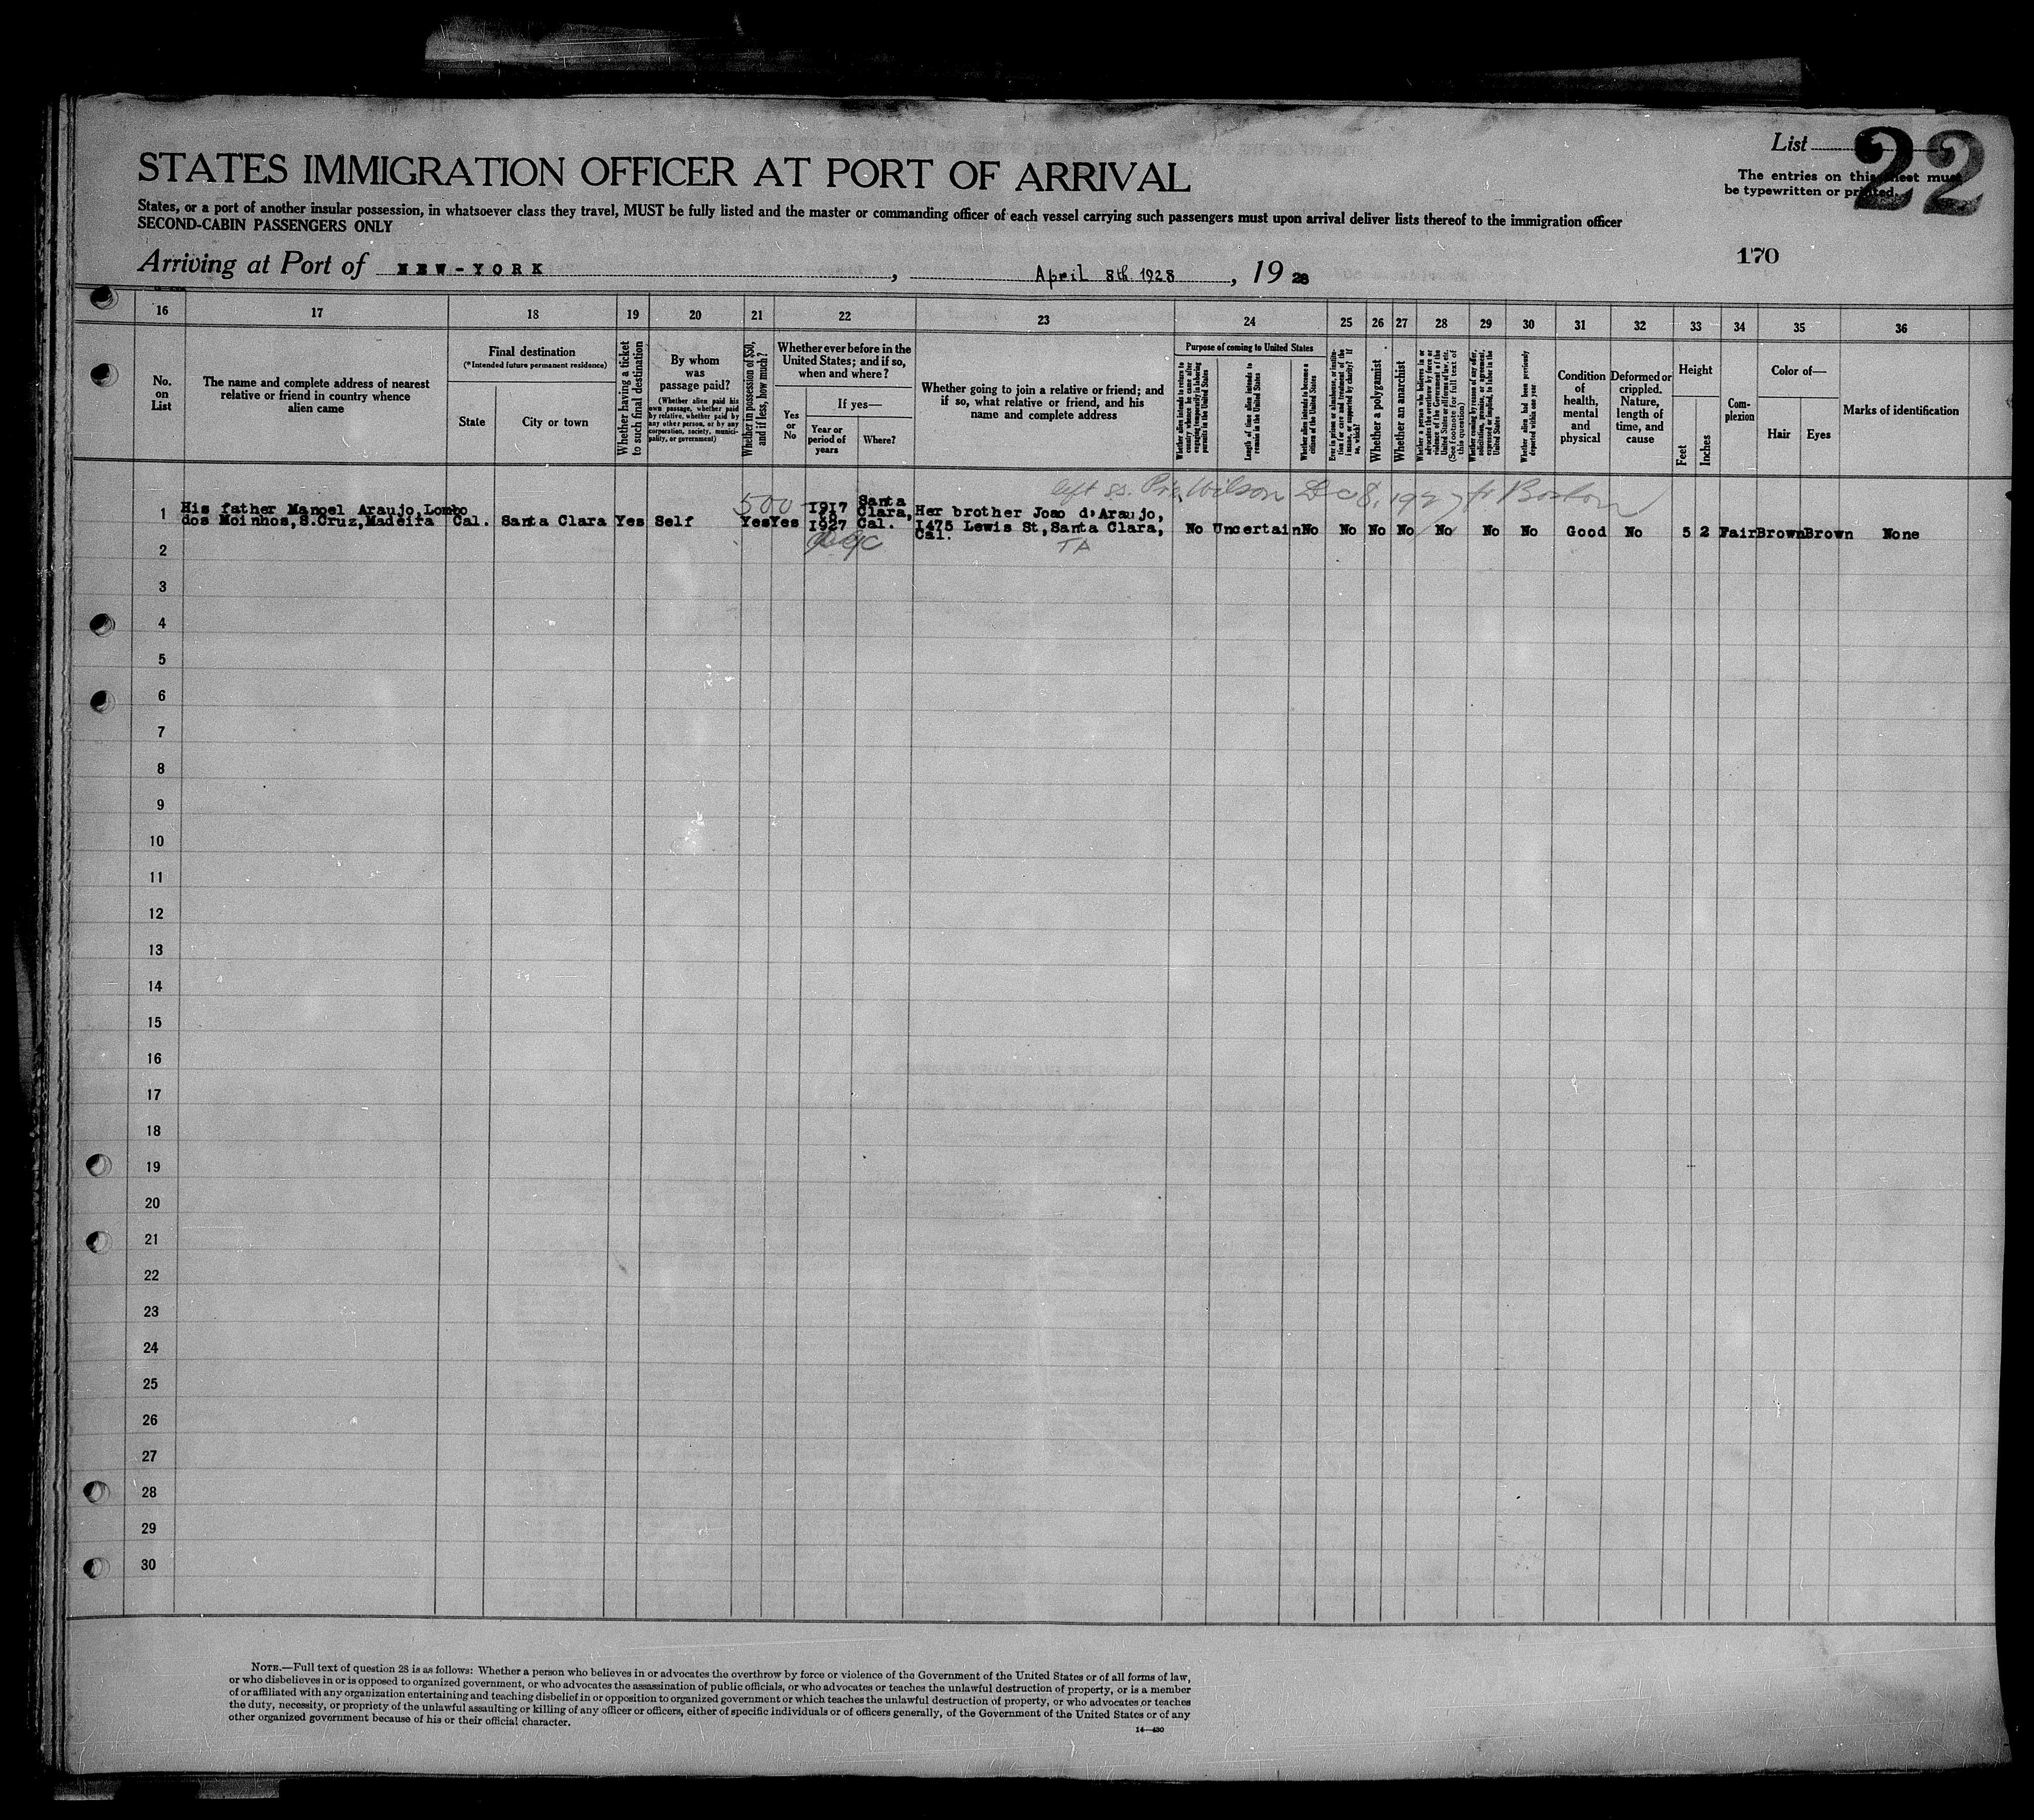 List 22
STATES IMMIGRATION OFFICER AT PORT OF ARRIVAL
The entries on this sheet must
be typewritten or printed.
States, or a port of another insular possession, in whatsoever class they travel, MUST be fully listed and the master or commanding officer of each vessel carrying such passengers must upon arrival deliver lists thereof to the immigration officer
SECOND-CABIN PASSENGERS ONLY
170
Arriving at Port of NEW-YORK, April 8th 1928, 19 28
16 17 18 19 20 21 22 23 24 25 26 27 28 29 30 31 32 33 34 35 36
No. on List
The name and complete address of nearest
relative or friend in country whence
alien came
Final destination
(*Intended future permanent residence)
State
City or town
Whether having a ticket
to such final destination
By whom
was
passage paid?
(Whether alien paid his
own passage, whether paid
by relative, whether paid by
any other person, or by any
corporation, society, munici-
pality, or government)
Whether in possession of $50,
and if less, how much?
Whether ever before in the
United States; and if so,
when and where?
Yes
or
No
If yes—
Year or
period of
years
Where?
Whether going to join a relative or friend; and
if so, what relative or friend, and his
name and complete address
Purpose of coming to United States
Whether alien intends to return to
country whence he came after
engaging temporarily in laboring
pursuits in the United States
Length of time alien intends to
remain in the United States
Whether alien intends to become a
citizen of the United States
Ever in prison or almshouse, or institu-
tion for care and treatment of the
insane, or supported by charity? If
so, which?
Whether a polygamist
Whether an anarchist
Whether a person who believes in or
advocates the overthrow by force or
violence of the Government of the
United States or all forms of law, etc.
(See footnote for full text of
this question)
Whether coming by reason of any offer,
solicitation, promise, or agreement,
expressed or implied, to labor in the
United States
Whether alien had been previously
deported within one year
Condition
of
health,
mental
and
physical
Deformed or
crippled.
Nature,
length of
time, and
cause
Height
Feet
Inches
Com-
plexion
Color of—
Hair
Eyes
Marks of identification
left ss. Pres Wilson Dec 8, 1927 fr Boston
1 His father Manoel Araujo, Lombo
dos Moinhos, S.Cruz, Madeira
Cal. Santa Clara Yes Self
500
Yes Yes
1917
to
1927
Santa
Clara,
Cal.
Her brother Joao d'Araujo,
1475 Lewis St, Santa Clara,
Cal.
TA
No Uncertain No No No No No No No Good No 5 2 Fair Brown Brown None
2
3
4
5
6
7
8
9
10
11
12
13
14
15
16
17
18
19
20
21
22
23
24
25
26
27
28
29
30
NOTE.—Full text of question 28 is as follows: Whether a person who believes in or advocates the overthrow by force or violence of the Government of the United States or of all forms of law,
or who disbelieves in or is opposed to organized government, or who advocates the assassination of public officials, or who advocates or teaches the unlawful destruction of property, or is a member
of or affiliated with any organization entertaining and teaching disbelief in or opposition to organized government or which teaches the unlawful destruction of property, or who advocates or teaches
the duty, necessity, or propriety of the unlawful assaulting or killing of any officer or officers, either of specific individuals or of officers generally, of the Government of the United States or of any
other organized government because of his or their official character.
14—430